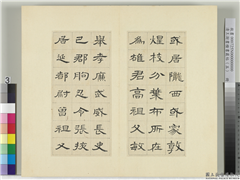 或居隴西或家敦
煌枝分葉布所在
為雄君高祖父敏
舉孝廉武威長史
巴郡朐忍令張掖
居延都尉曾祖父